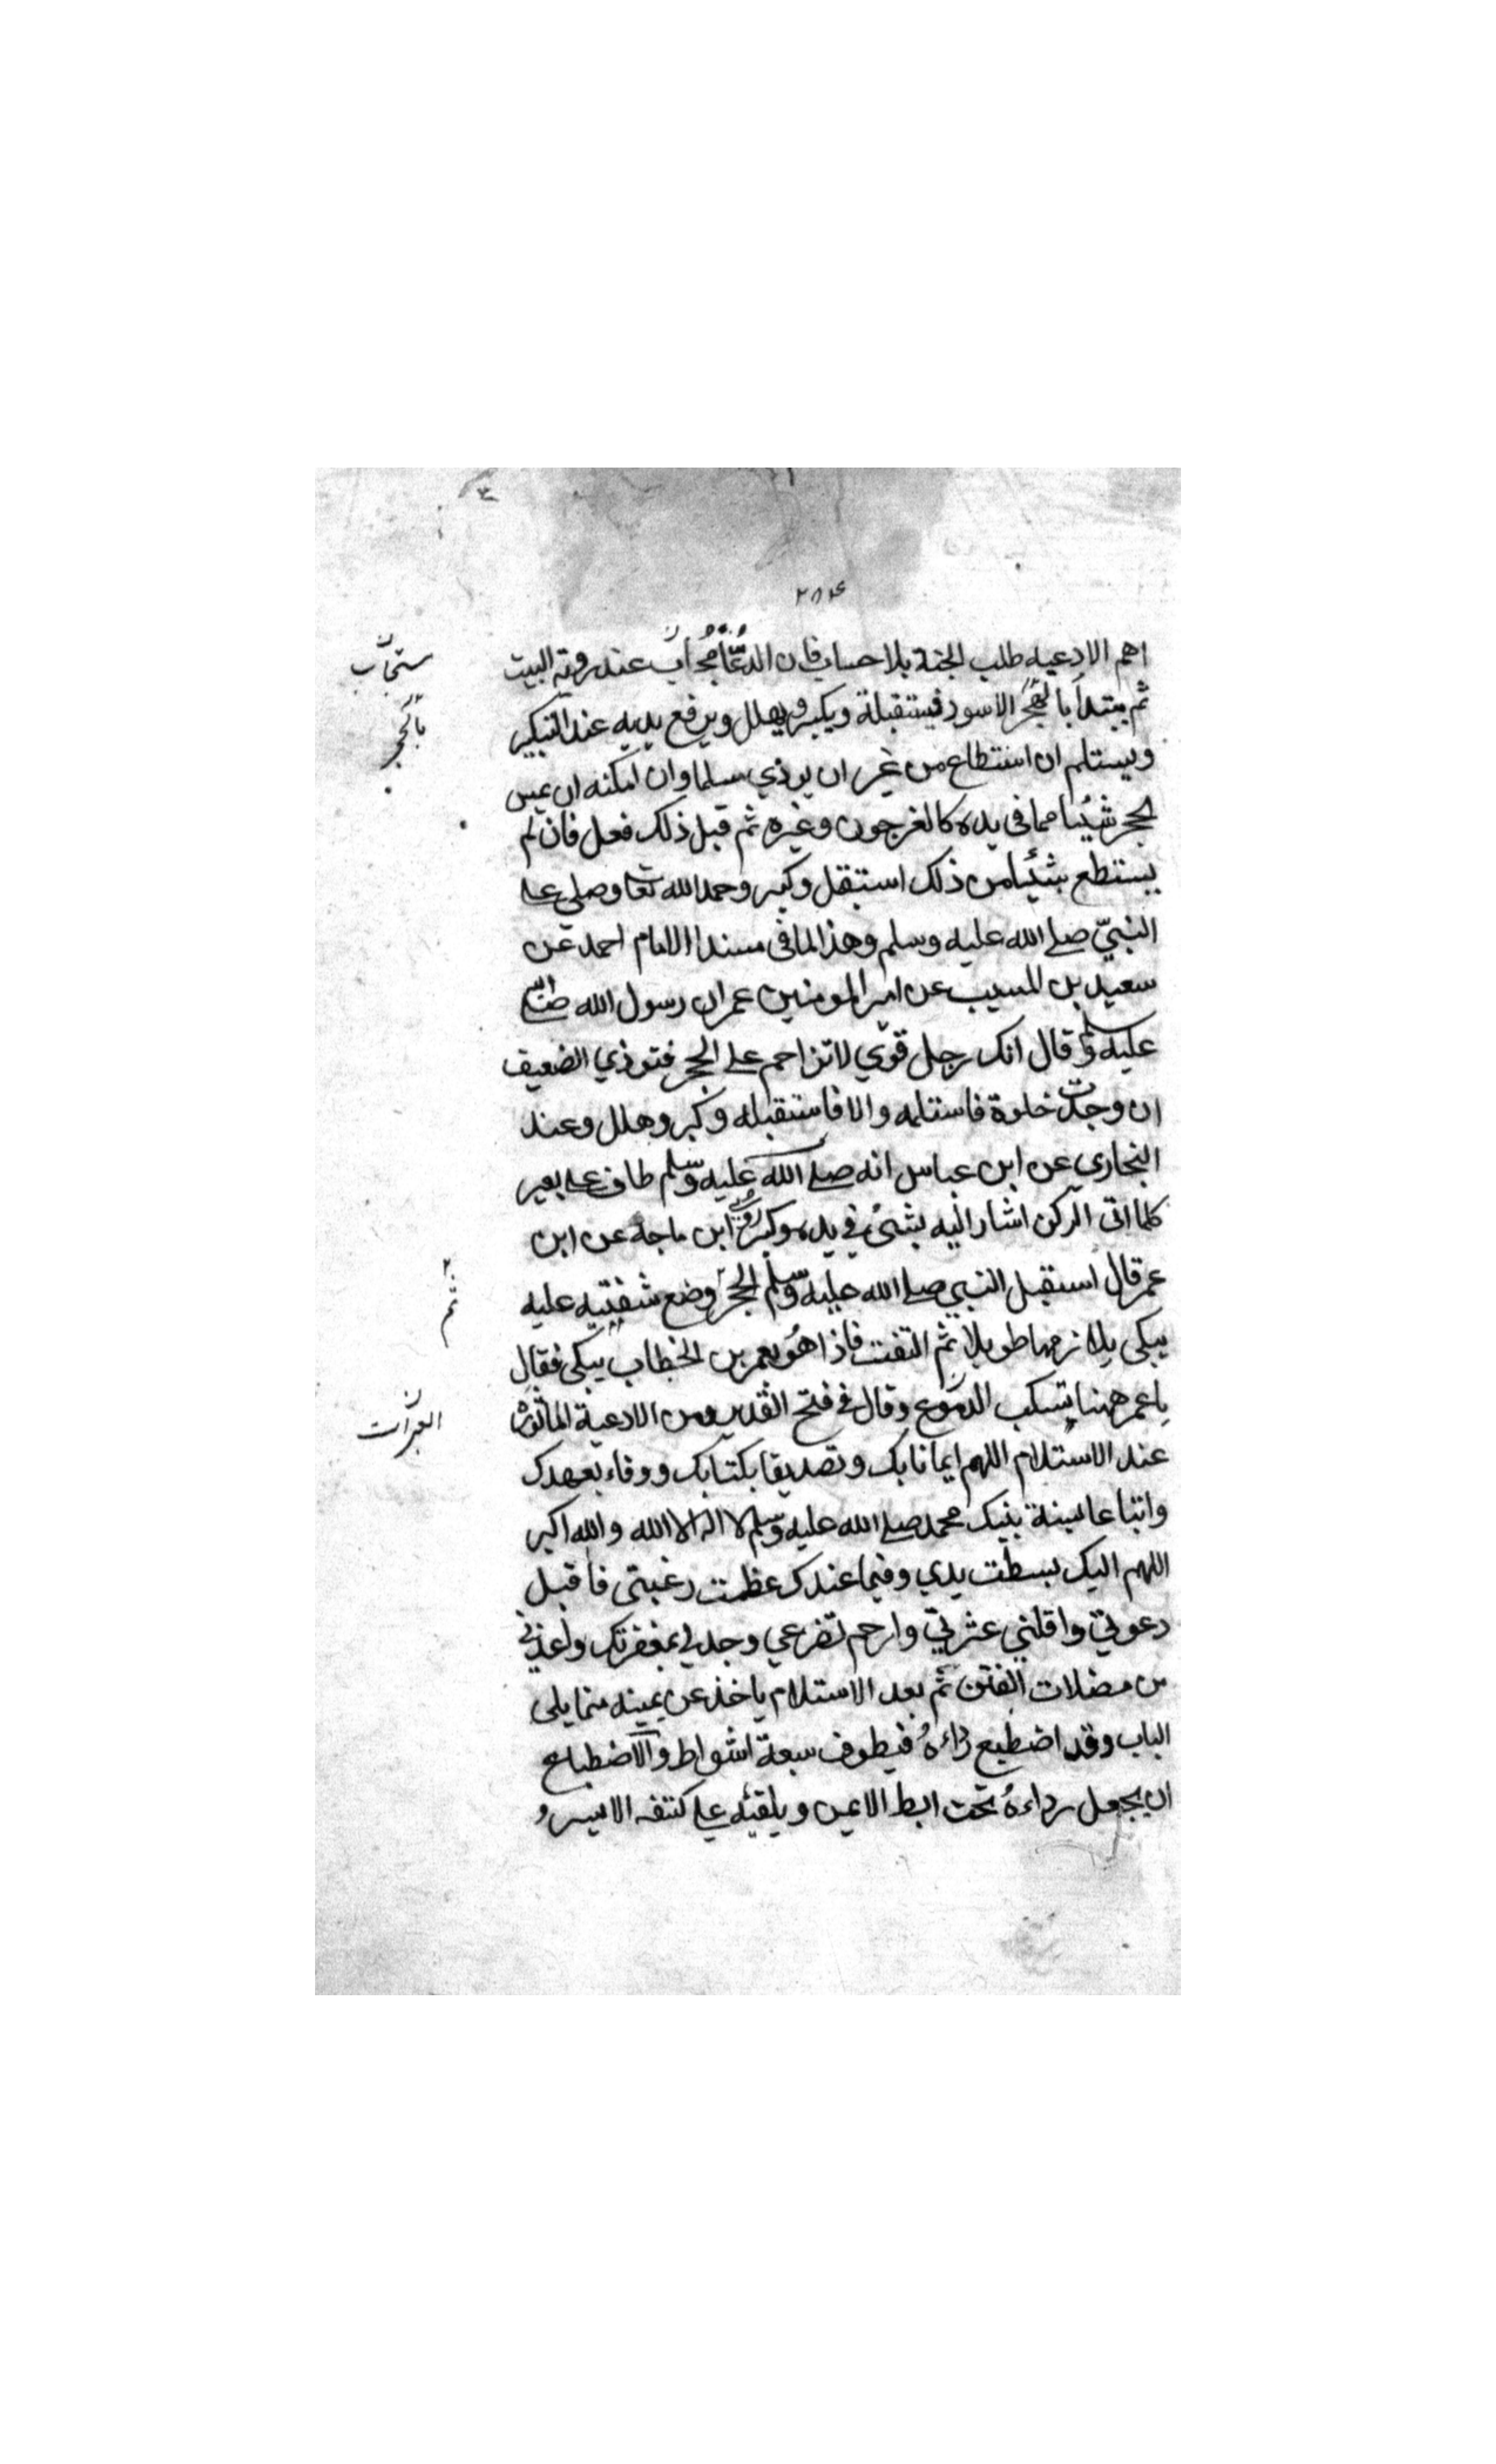 ٢٨٤
اهم الادعيه طلب الجنة بلا حساب فان الدعا مجاب عند روية البيت
مستجاب
ثم يبتدا بالحجر الاسود فيستقبلة ويكبر ويهلل ويرفع يديه عند التكبير
بالحجر
ويستلم ان استطاع من غير ان يوذي مسلما وان امكنه ان يمس
لحجر شيئا مما في يده كالعرجون وغيره ثم قبل ذلك فعل فان لم
يستطع شيئا من ذلك استقبل وكبر وحمد الله تعا وصلي علے
النبيّ صلے الله عليه وسلم وهذا لما في مسند الامام احمد عن
سعيد بن المسيب عن امير المومنين عمر ان رسول الله صلے الله
عليه وسلم قال انك رجل قوي لا تزاحم علے الحجر فتوذي الضعيف
ان وجدت خلوة فاستلمه والا فاستقبله وكبر وهلل وعند
البخاري عن ابن عباس انه صلے الله عليه وسلم طاف علے بعير
كلما اتى الركن اشار اليه بشئ في يده وكبر وروي ابن ماجة عن ابن
عمر قال استقبل النبي صلے الله عليه وسلم الحجر وضع شفتيه عليه
ثم
يبكي يلا زمها طويلا ثم التفت فاذا هو بعمر بن الخطاب يبكي فقال
يا عمر ههنا تسكب الدموع وقال في فتح القدير ومن الادعية الماثورة
العبرات
عند الاستلام اللهم ايمانا بك وتصديقا بكتابك ووفاء بعهدك
واتباعا لسنة نبيك محمد صلے الله عليه وسلم لا اله الا الله والله اكبر
اللهم اليك بسطت يدي وفيما عندك عظمت رغبتي فاقبل
دعوتي واقلني عثرتي وارحم تضرعي وجد لي بمغفرتك واعذني
من مضلات الفتن ثم بعد الاستلام ياخذ عن يمينه مما يلي
الباب وقد اضطبع رداءهُ فيطوف سبعة اشواط والاضطباع
ان يجعل رداءهُ تحت ابط الايمن ويلقيه علے كتفه الايسر و